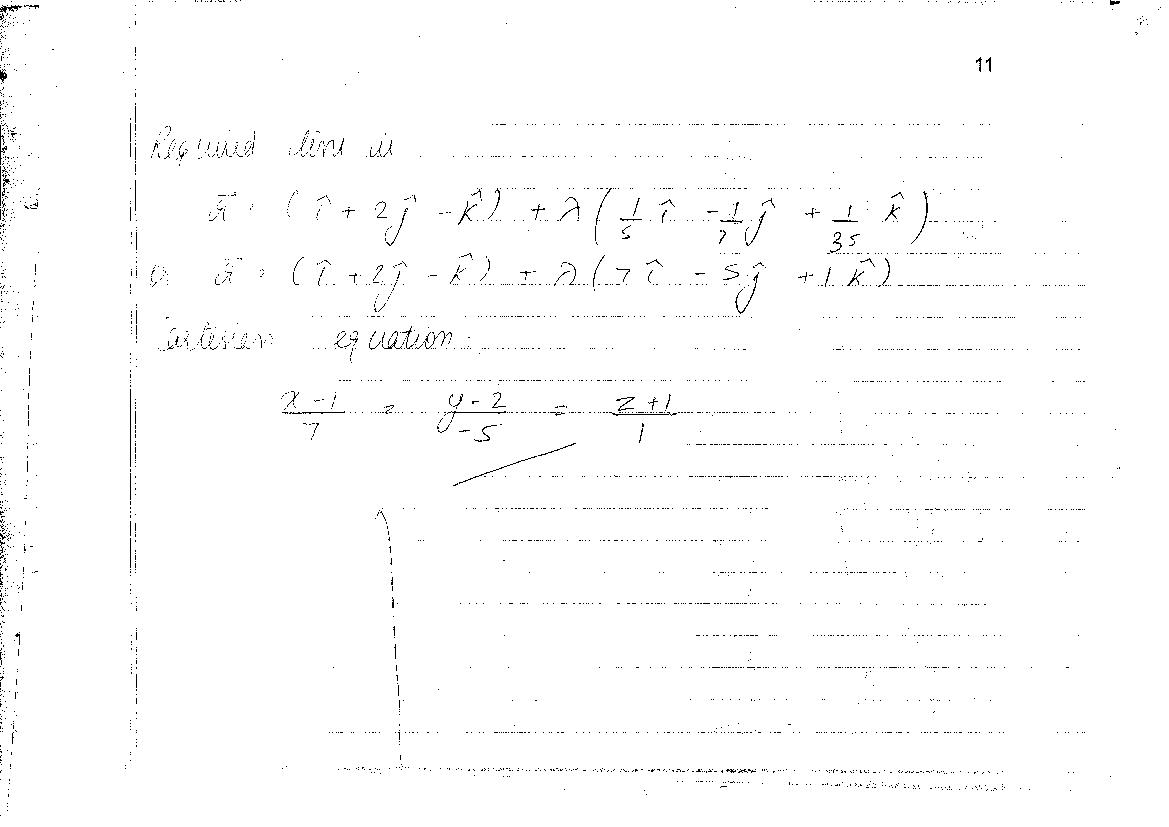 11
Required line is
r⃗ = (î + 2ĵ - k̂) + λ(1/5 î - 1/7 ĵ + 1/35 k̂)
r⃗ = (î + 2ĵ - k̂) + λ(7î - 5ĵ + 1k̂)
Cartesian equation
x-1/7 = y-2/-5 = z+1/1